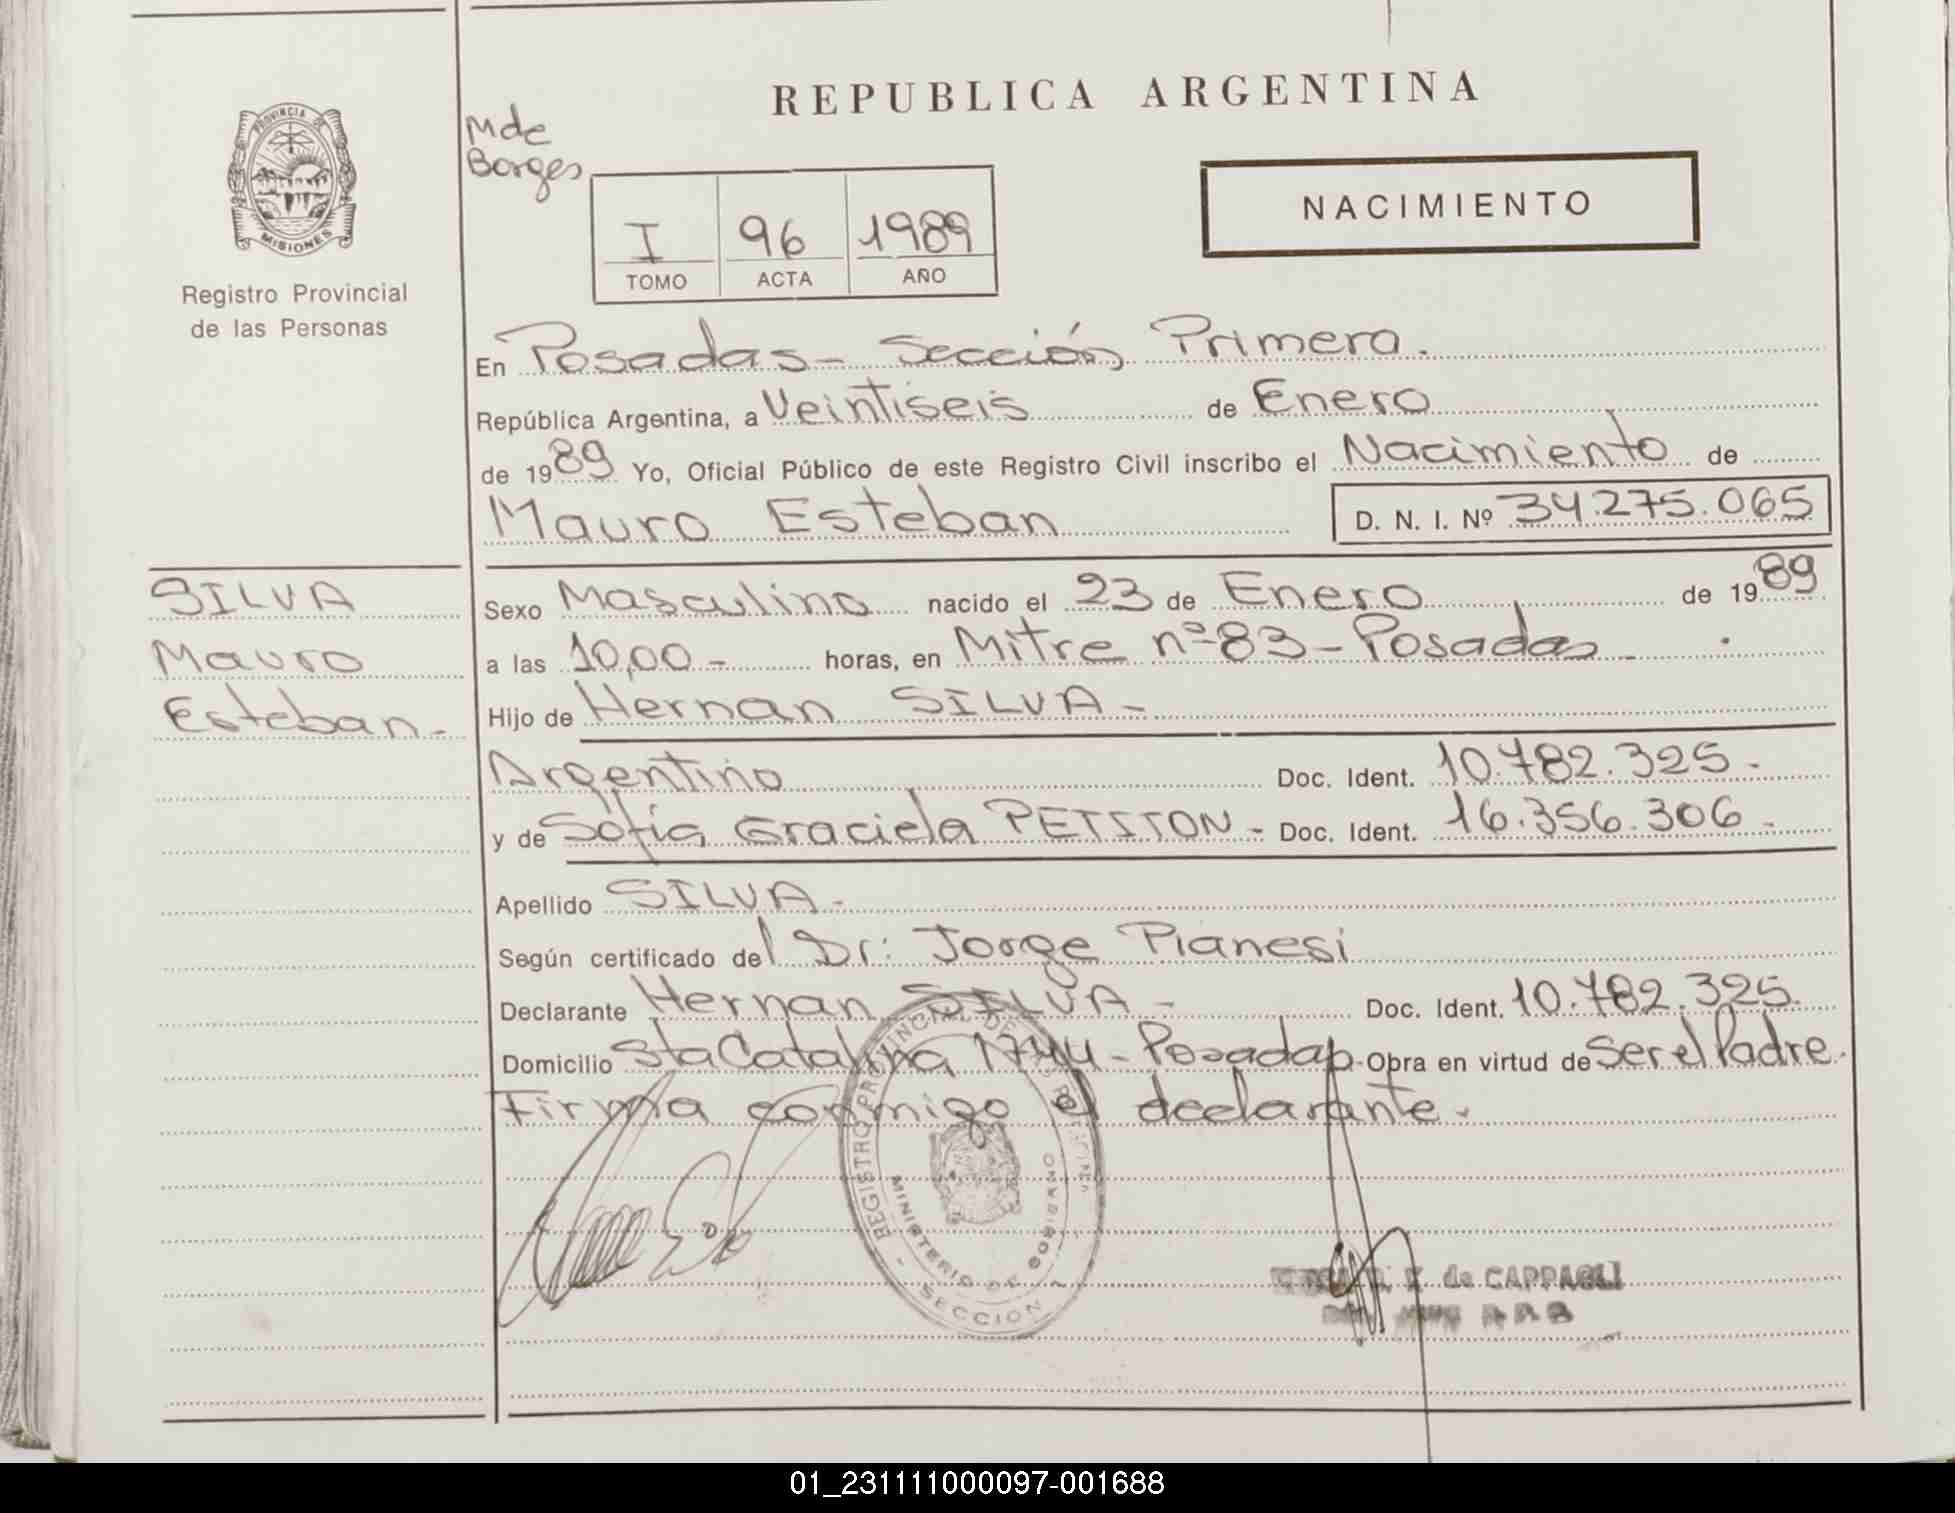 REPUBLICA ARGENTINA
Mde
Borges
PROVINCIA DE
MISIONES
Registro Provincial
de las Personas
I 96 1989
TOMO ACTA AÑO
NACIMIENTO
En Posadas - Sección Primera.
República Argentina, a Veintiseis de Enero
de 1989 Yo, Oficial Público de este Registro Civil inscribo el Nacimiento de
Mauro Esteban D. N. I. Nº 34.275.065
SILVA
Mauro
Esteban.-
Sexo Masculino nacido el 23 de Enero de 1989
a las 10,00 - horas, en Mitre nº 83 - Posadas -
Hijo de Hernan SILVA -
Argentino Doc. Ident. 10.782.325 -
y de Sofía Graciela PETITON - Doc. Ident. 16.356.306 -
Apellido SILVA -
Según certificado del Dr: Jorge Pianesi
Declarante Hernan SILVA - Doc. Ident. 10.782.325.
Domicilio Sta Catalina 1744 - Posadas Obra en virtud de Ser el Padre.
Firma conmigo el declarante.
REGISTRO PROVINCIAL DE LAS PERSONAS
MINISTERIO DE GOBIERNO
- SECCION 1
de CAPPAGLI
01_231111000097-001688